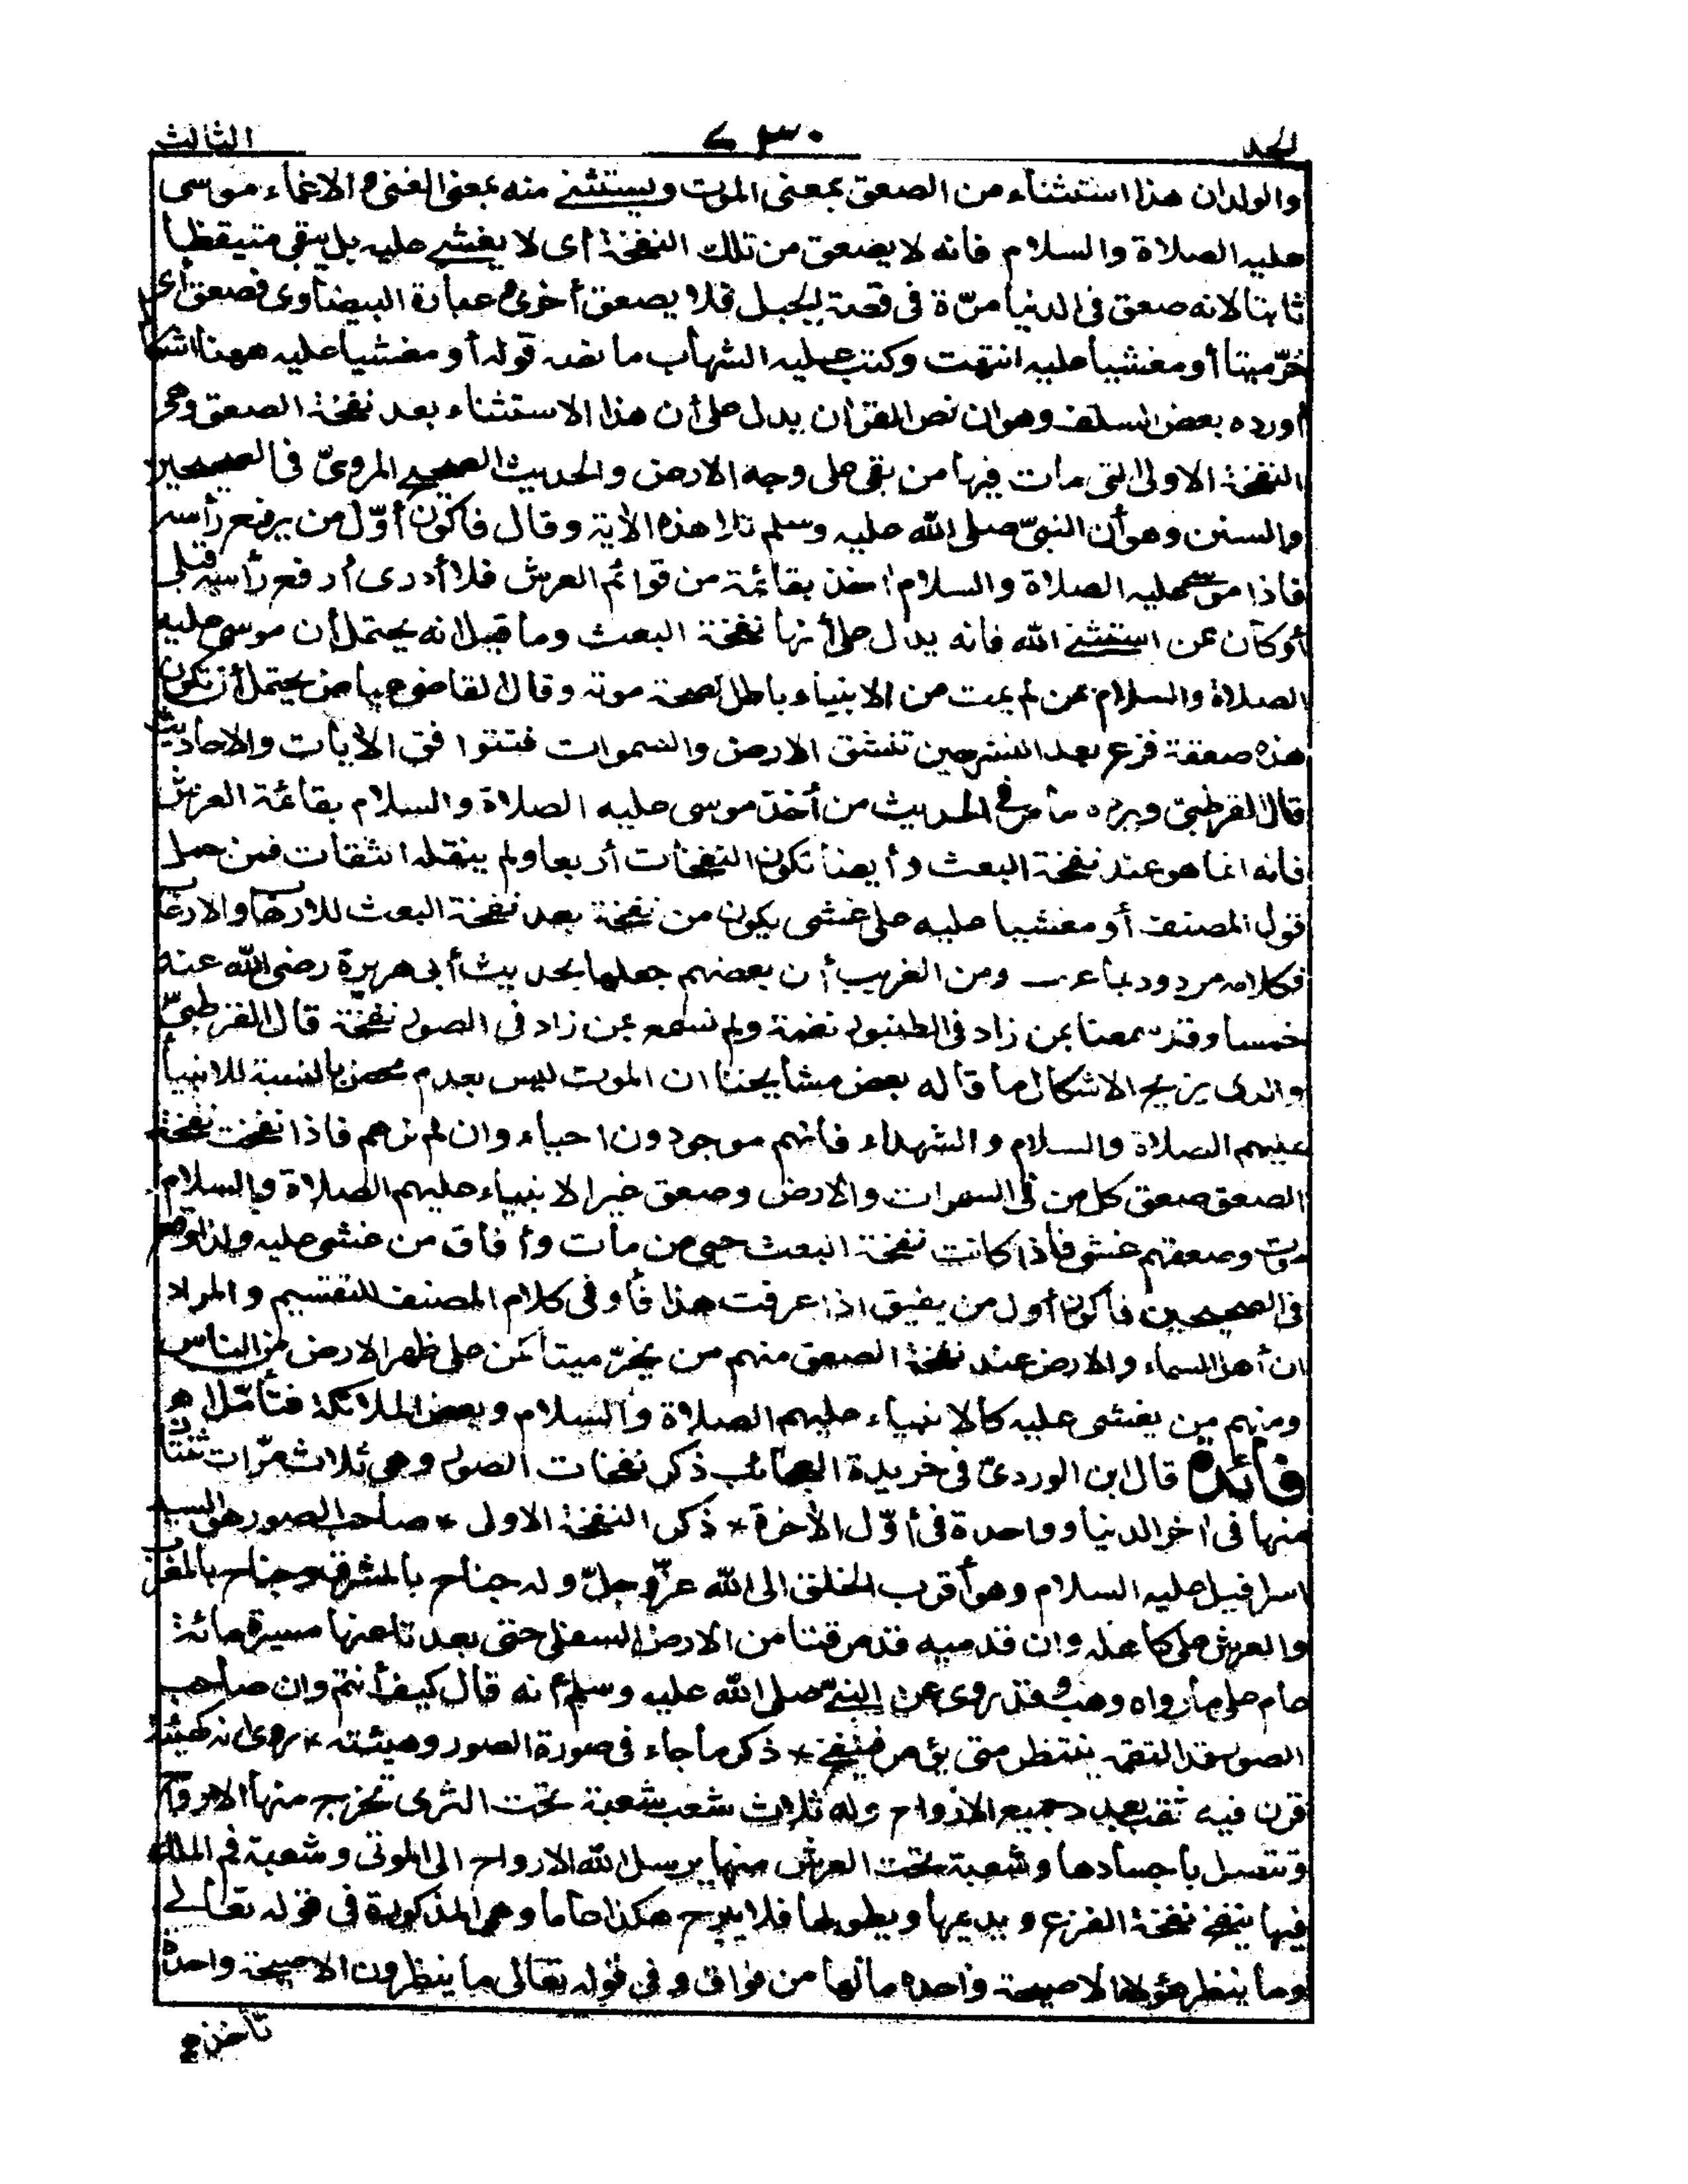 الجلد ٧٣٠ الثالث
والولدان هذا استثناء من الصعق بمعنى الموت ويستثنى منه بمعنى الغشى والاغماء موسى
عليه الصلاة والسلام فانه لا يصعق من تلك النفخة أى لا يغشى عليه بل يبقى متيقظا
ثابتا لانه صعق فى الدنيا مرّة فى قصة الجبل فلا يصعق أخرى وعبارة البيضاوى فصعق أى
خرّ ميتا أو مغشيا عليه انتهت وكتب عليه الشهاب ما نصه قوله أو مغشيا عليه ههنا اشكال
أورده بعض السلف وهو ان نص القرآن يدل على أن هذا الاستثناء بعد نفخة الصعق وهى
النفخة الاولى التى مات فيها من بقى على وجه الارض والحديث الصحيح المروىّ فى الصحيحين
والسنن وهو أن النبىّ صلى الله عليه وسلم تلا هذه الآية وقال فأكون أوّل من يرفع رأسه
فاذا موسى عليه الصلاة والسلام آخذ بقائمة من قوائم العرش فلا أدرى أرفع رأسه قبلى
أو كان ممن استثنى الله فانه يدل على أنها نفخة البعث وما قيل انه يحتمل أن موسى عليه
الصلاة والسلام ممن لم يمت من الانبياء باطل لصحة موته وقال القاضى عياض يحتمل أن تكون
هذه صعقة فزع بعد النشر حين تنشق الارض والسموات فتتوافق الآيات والاحاديث
قال القرطبى ويرده ما مر فى الحديث من أخذ موسى عليه الصلاة والسلام بقائمة العرش
فانه انما هو عند نفخة البعث وأيضا تكون النفخات أربعا ولم ينقله الثقات فمن حمل
قول المصنف أو مغشيا عليه على غشى يكون من نفخة بعد نفخة البعث للارهاب والارعاب
فكلامه مردود بما عرف ومن الغريب أن بعضهم جعلها بحديث أبى هريرة رضى الله عنه
خمسا وقد سمعنا بمن زاد فى الطنبور نغمة ولم نسمع بمن زاد فى الصور نفخة قال القرطبىّ
والذى يزيح الاشكال ما قاله بعض مشايخنا ان الموت ليس بعدم محض بالنسبة للانبياء
عليهم الصلاة والسلام والشهداء فانهم موجودون احياء وان لم نرهم فاذا نفخت نفخة
الصعق صعق كل من فى السموات والارض وصعق غير الانبياء عليهم الصلاة والسلام
موت وصعقهم غشى فاذا كانت نفخة البعث حيى من مات وأفاق من غشى عليه ولذا وقع
فى الصحيحين فأكون أول من يفيق اذا عرفت هذا فأو فى كلام المصنف للتقسيم والمراد
ان أهل السماء والارض عند نفخة الصعق منهم من يخرّ ميتا كمن على ظهر الارض من الناس
ومنهم من يغشى عليه كالانبياء عليهم الصلاة والسلام وبعض الملائكة فتأمّل اه
فائدة قال ابن الوردىّ فى خريدة العجائب ذكر نفخات الصور وهى ثلاث مرّات ثنتان
منها فى آخر الدنيا وواحدة فى أوّل الآخرة * ذكر النفخة الاولى * صاحب الصور هو السيد
اسرافيل عليه السلام وهو أقرب الخلق الى الله عزّ وجلّ وله جناح بالمشرق وجناح بالمغرب
والعرش على كاهله وان قدميه قد مرقتا من الارض السفلى حتى بعدتا عنها مسيرة مائة
عام على ما رواه وهب وقد روى عن النبىّ صلى الله عليه وسلم أنه قال كيف أنتم وان صاحب
الصور قد التقمه ينتظر متى يؤمر فينفخ * ذكر ما جاء فى صورة الصور وهيئته * روى انه كهيئة
قرن فيه ثقب بعدد جميع الارواح وله ثلاث شعب شعبة تحت الثرى تخرج منها الارواح
وتتصل بأجسادها وشعبة تحت العرش منها يرسل الله الارواح الى الموتى وشعبة فى فم الملك
فيها ينفخ نفخة الفزع ويديمها ويطولها فلا يبرح هكذا عاما وهى المذكورة فى قوله تعالى
وما ينظر هؤلاء الا صيحة واحدة مالها من فواق وفى قوله تعالى ما ينظرون الا صيحة واحدة
تأخذهم